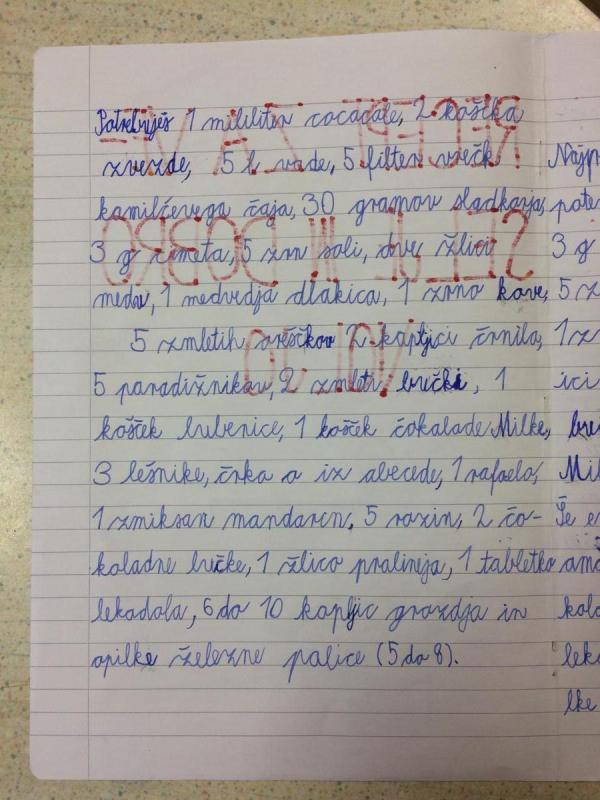 Potrebuješ 1 mililiter cocacole, 2 koščka
zvezde, 5 l vode, 5 filter vrečk
kamiličevega čaja, 30 gramov sladkorja,
3 g cimeta, 5 zrn soli, dve žlici
medu, 1 medvedja dlakica, 1 zrno kave,
5 zmletih oreščkov 2 kapljici črnila,
5 paradižnikov, 2 zmleti bučki, 1
košček lubenice, 1 košček čokolade Milke,
3 lešnike, črka a iz abecede, 1 rafaelo,
1 zmiksan mandaren, 5 rozin, 2 čo-
koladne bučke, 1 žlico pralineja, 1 tabletko
lekadola, 6 do 10 kapljic grozdja in
opilke železne palice (5 do 8).
3 g
5 z
1 z